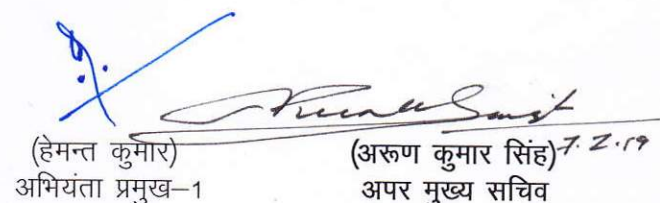 (हेमन्त कुमार)
अभियंता प्रमुख–1
(अरूण कुमार सिंह) 7.2.19
अपर मुख्य सचिव